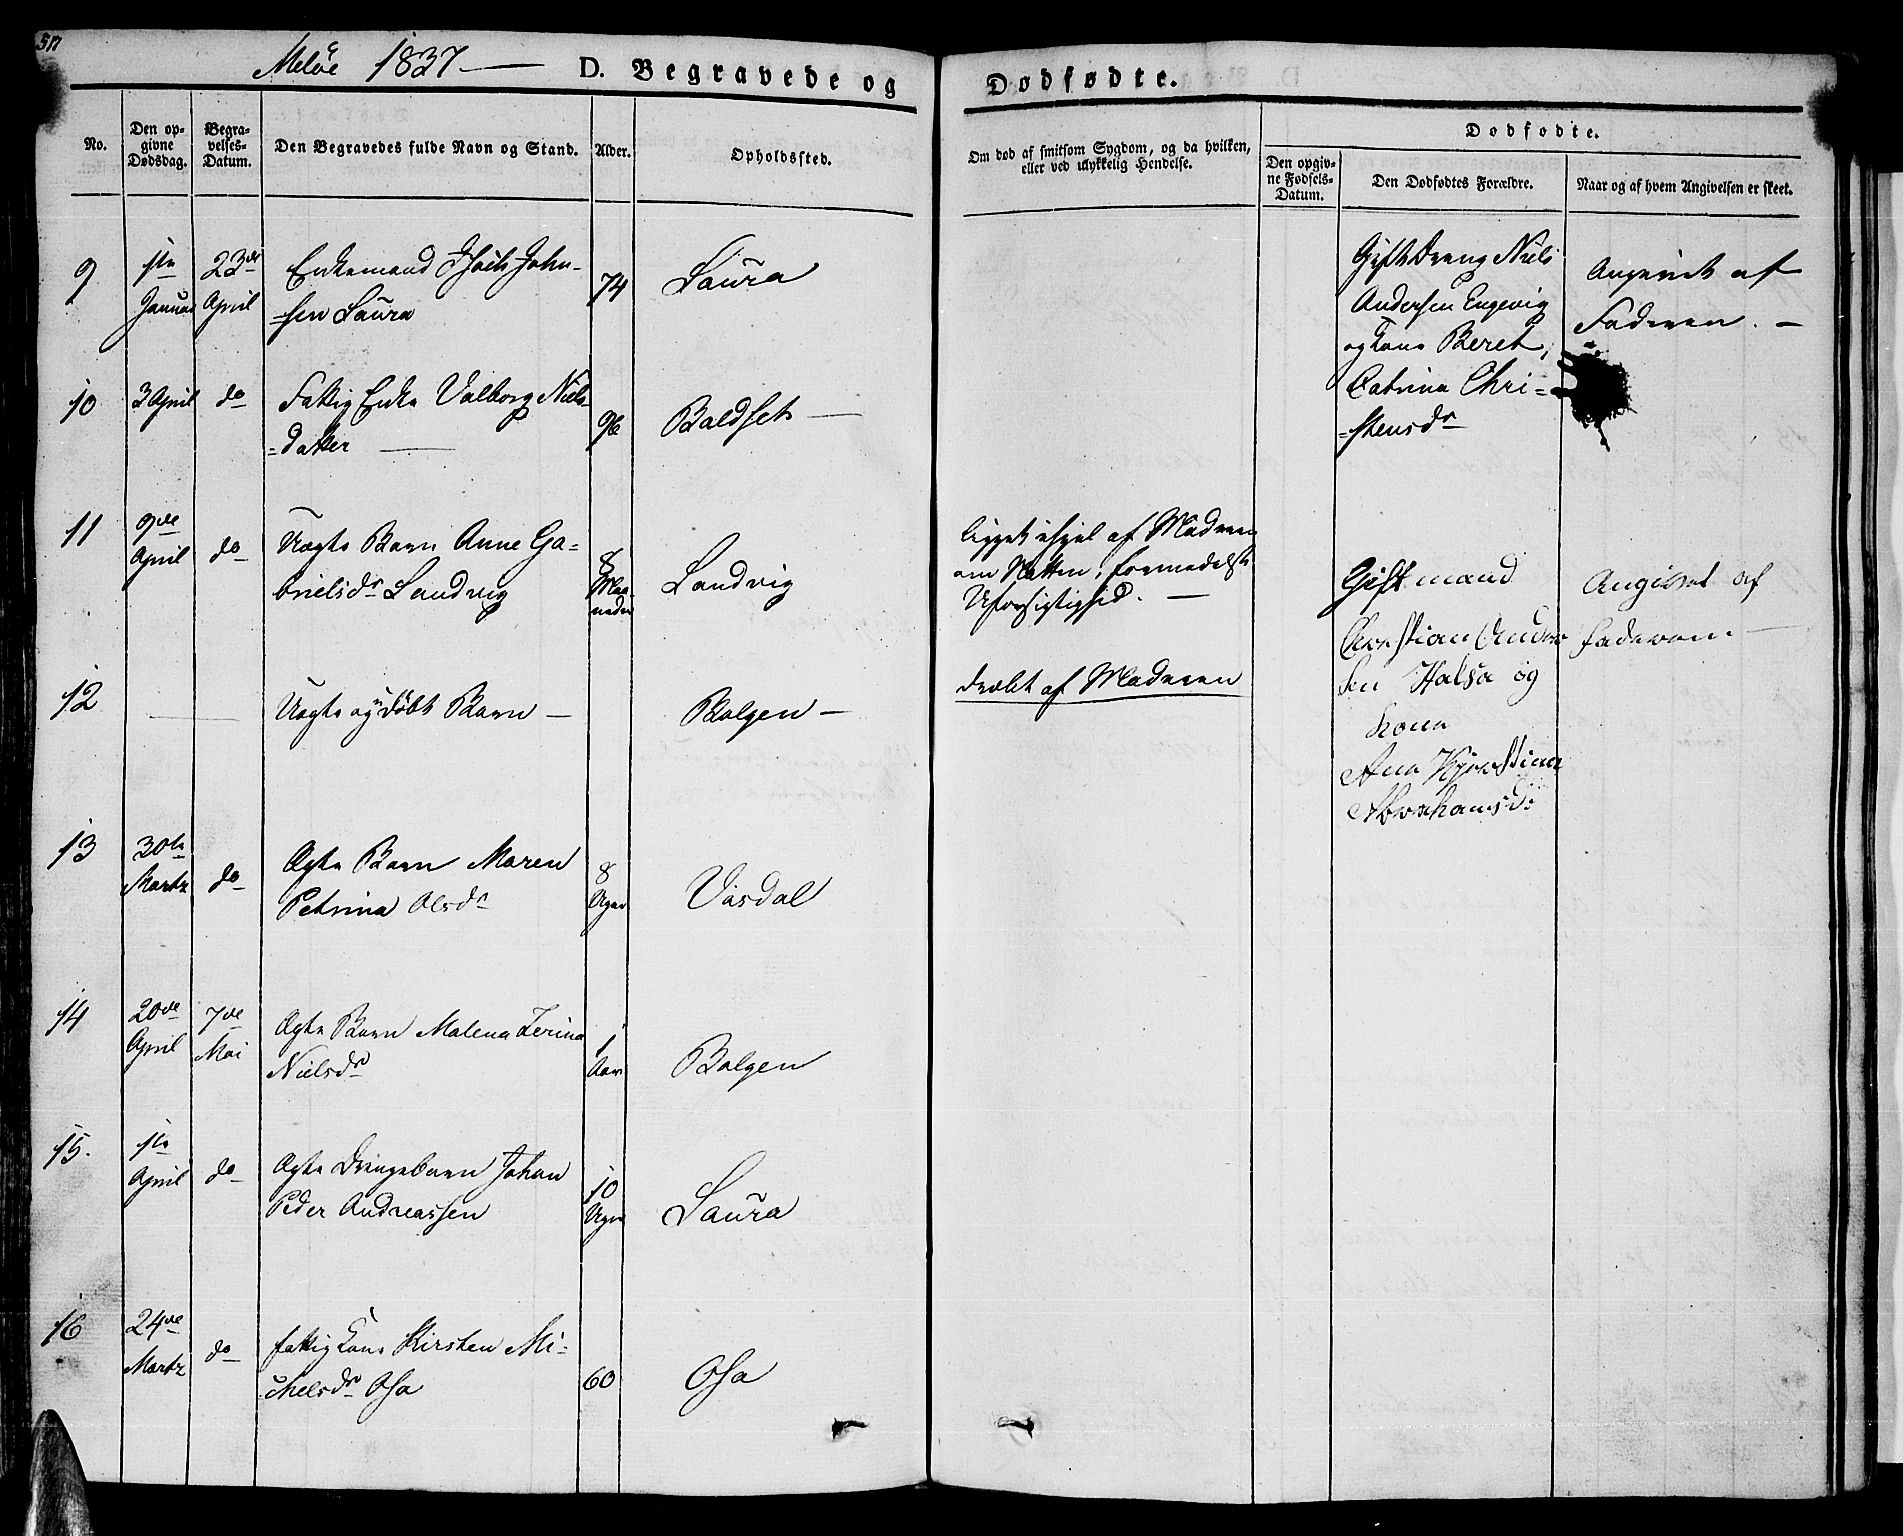 517
Meløe 1837 — D. Begravede og Dødfødte.
No.
Den op-
givne
Dødsdag.
Begra-
velses-
Datum.
Den Begravedes fulde Navn og Stand.
Alder.
Opholdssted.
Om død af smitsom Sygdom, og da hvilken,
eller ved ulykkelig Hendelse.
Dødfødte.
Den opgiv-
ne Fødsels-
Datum.
Den Dødfødtes Forældre.
Naar og af hvem Angivelsen er skeet.
9
1ste
Januar
23de
April
Enkemand Isach John-
=sen Saura
74
Saura
Gift Dreng Niels
Andersen Engevig
og Kone Beret,
Catrina Chri-
=stensdr
Angivet af
Faderen. —
10
3 April
do
Fattig Enke Valborg Niels-
=datter —
96
Boldset —
11
9de
April
do
Uægte Barn Anne Ga-
brielsdr Landvig
8
Maa-
neder
Landvig
ligget ihjel af Moderen
om Natten, formedelst
Uforsigtighed. —
Gift mand
Christian Ander
sen Halsa og
kone
Ana Kjerstina
Abrahamsdr
Angivet af
faderen —
12
Uægte og udøbt Barn —
Bolgen —
dræbt af Moderen
13
30te
Martz
do
Ægte Barn Maren
Petrina Olsdr
8
Uger
Vasdal
14
20de
April
7de
Mai
Ægte Barn Malena Zerina
Nielsdr
1
Aar
Bolgen
15.
1te
April
do
Ægte Drengebarn Johan
Peder Andreassen
10
Uger
Saura
16
24de
Martz
do
fattig Kone Kirsten Mi-
=chelsdr Osa
60
Osa